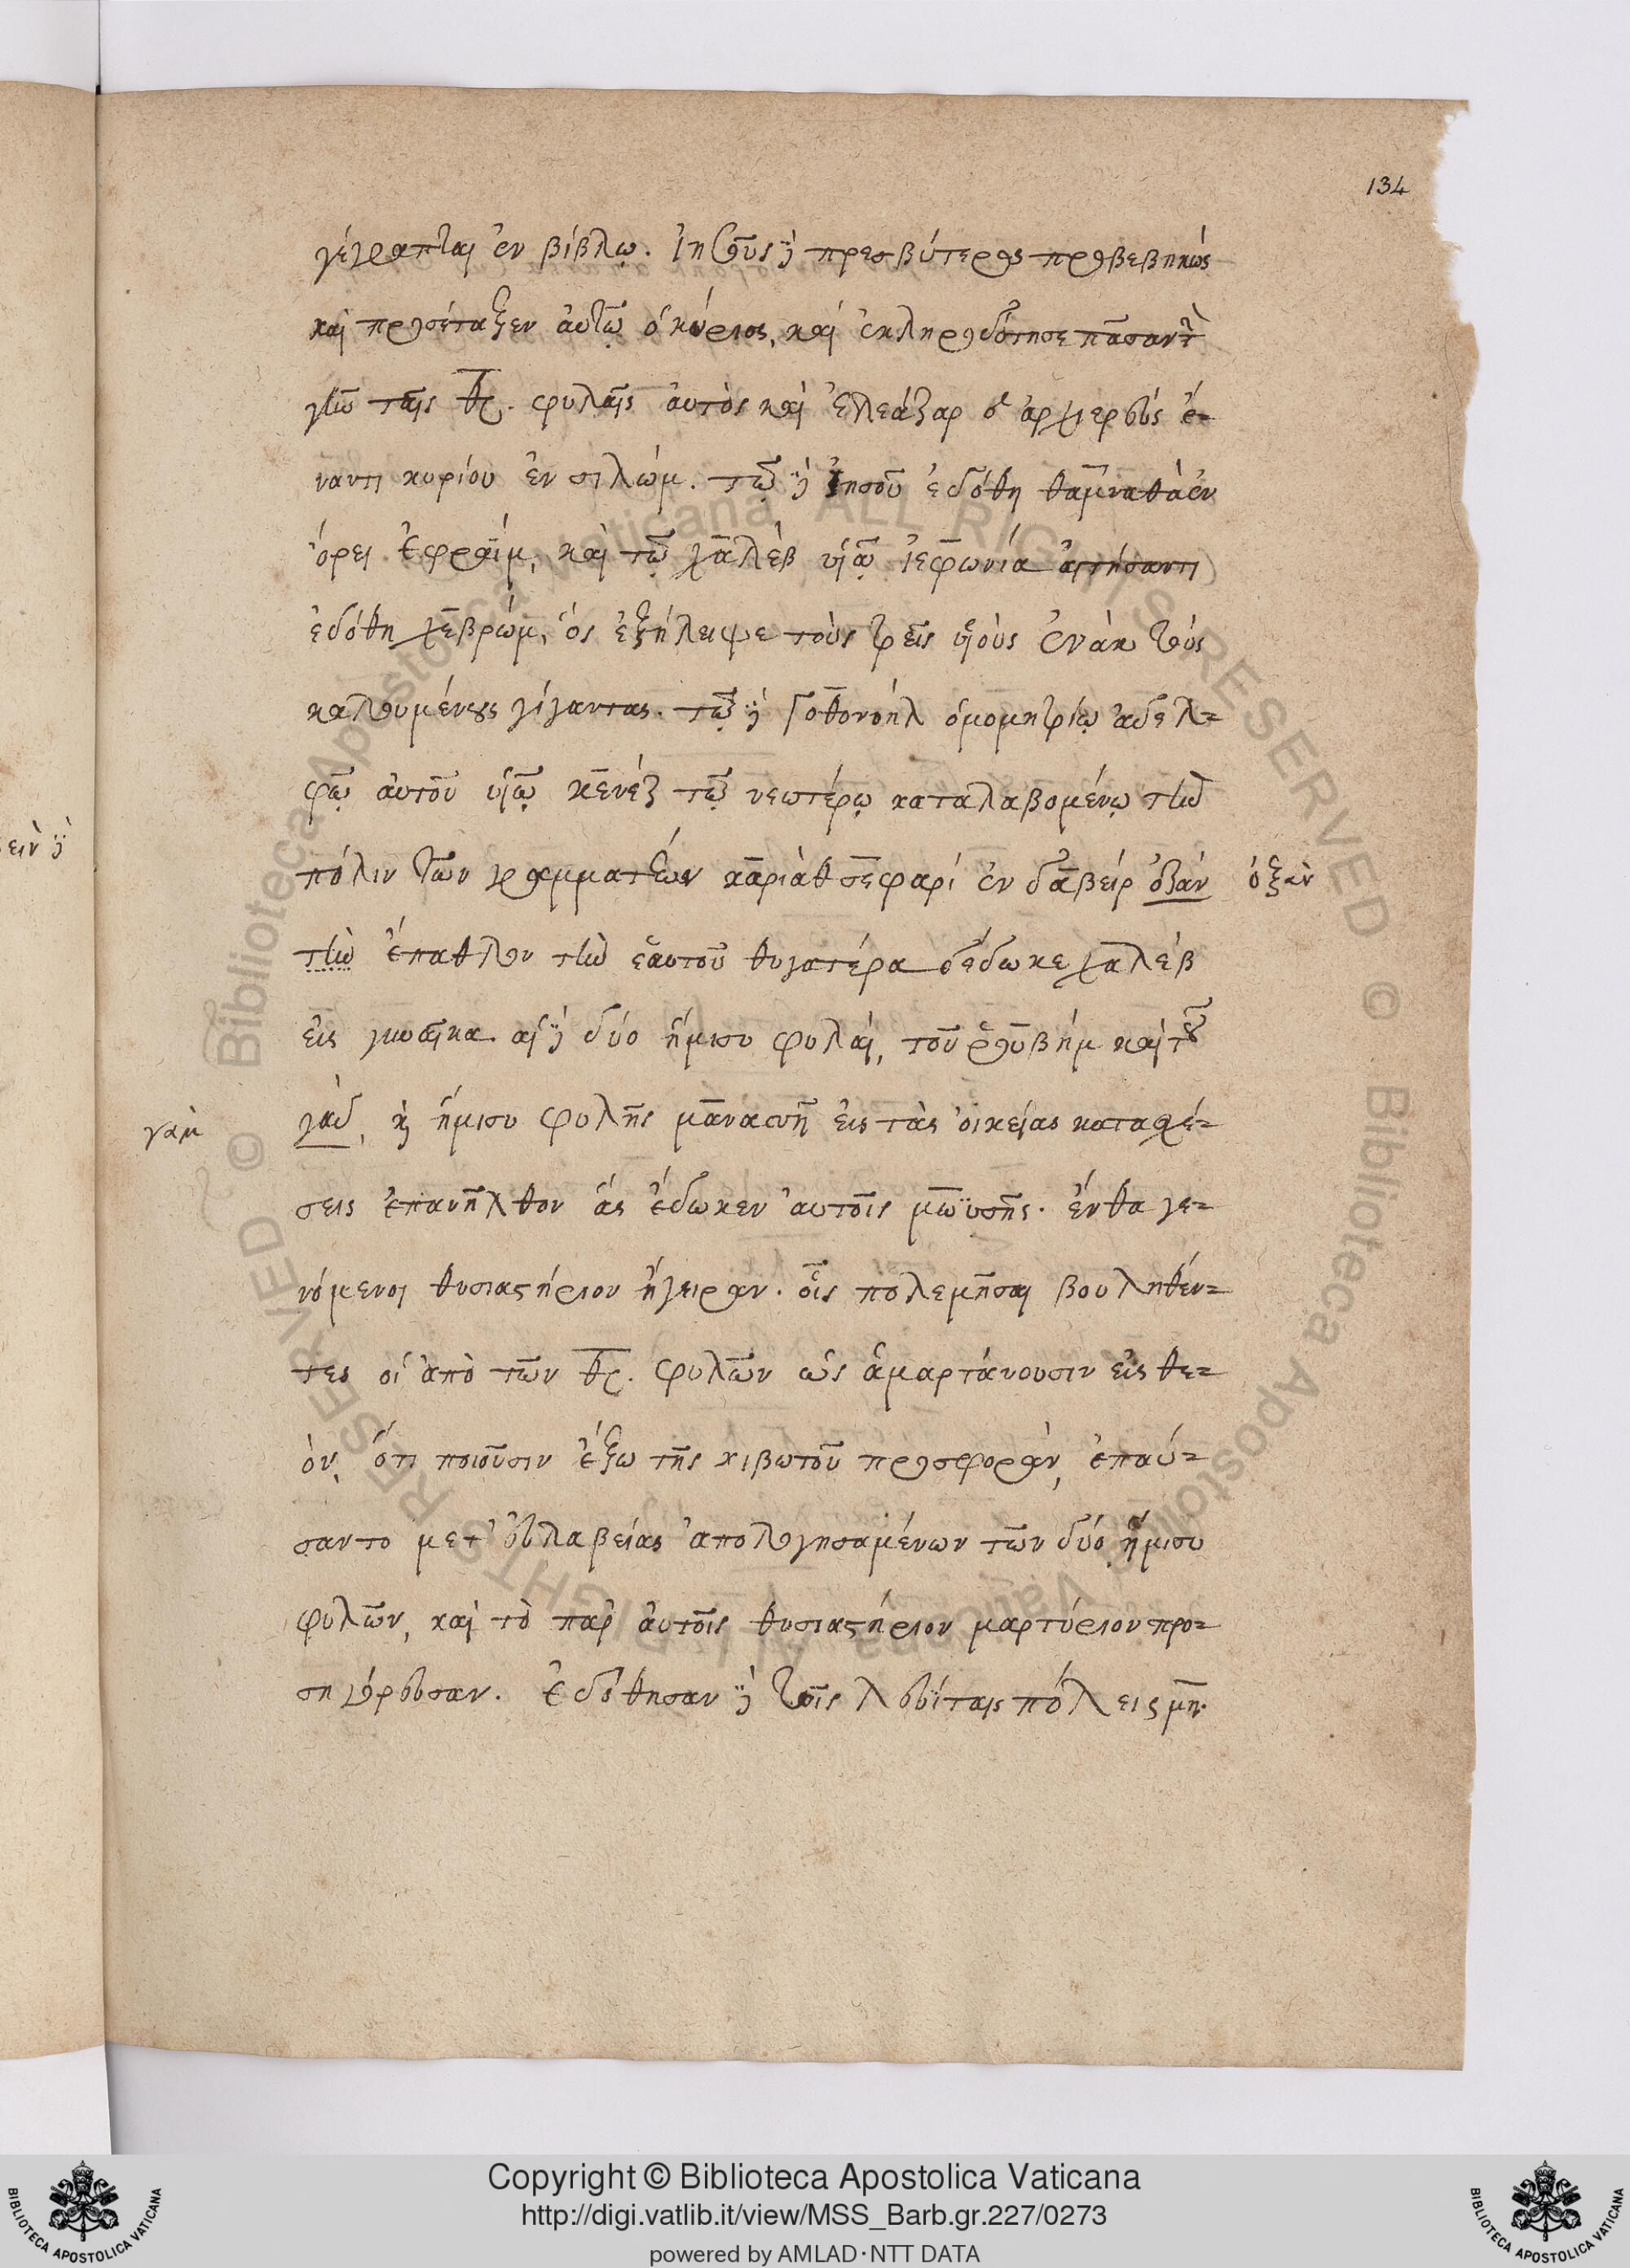 134
γέγραπται ἐν βίβλῳ. Ἰησοῦς δὲ πρεσβύτερος προβεβηκώς
καὶ προσέταξεν αὐτῷ ὁ κύριος, καὶ ἐκληροδότησε πᾶσαν τὴν
γῆν ταῖς θ̅ς̅. φυλαῖς αὐτὸς καὶ Ἐλεάζαρ ὁ ἀρχιερεὺς ἔ-
ναντι κυρίου ἐν σιλώμ. τῷ δὲ Ἰησοῦ ἐδόθη θαμναθὰ ἐν
ὄρει ἐφραΐμ, καὶ τῷ χαλὲβ υἱῷ ἰεφωνία αἰτήσαντι
ἐδόθη χεβρώμ, ὃς ἐξήλειψε τοὺς τρεῖς υἱοὺς ἐνὰκ τοὺς
καλουμένους γίγαντας. τῷ δὲ γοθονοὴλ ὁμομητρίῳ ἀδελ-
φῷ αὐτοῦ υἱῷ κενὲζ τῷ νεωτέρῳ καταλαβομένῳ τὴν
πόλιν τῶν γραμματέων καριὰθ σεφαρὶ ἐν δαβεὶρ ὀζάν ὀξὰν
τὴν ἔπαθλον τὴν ἑαυτοῦ θυγατέρα δέδωκε χαλὲβ
εἰς γυναῖκα. αἱ δὲ δύο ἥμισυ φυλαί, τοῦ ῥουβὴμ καὶ τοῦ
γὰδ, καὶ ἥμισυ φυλῆς μανασσῆ εἰς τὰς οἰκείας κατασχέ-
γὰμ
σεις ἐπανῆλθον ἃς ἔδωκεν αὐτοῖς μωϋσῆς. ἔνθα γε-
νόμενοι θυσιαστήριον ἤγειραν. οἷς πολεμῆσαι βουληθέν-
τες οἱ ἀπὸ τῶν θ̅ς̅. φυλῶν ὡς ἁμαρτάνουσιν εἰς θε-
όν, ὅτι ποιοῦσιν ἔξω τῆς κιβωτοῦ προσφορὰν, ἐπαύ-
σαντο μετ' εὐλαβείας ἀπολογησαμένων τῶν δύο ἥμισυ
φυλῶν, καὶ τὸ παρ' αὐτοῖς θυσιαστήριον μαρτύριον προ-
σηγόρευσαν. ἐδόθησαν δὲ τοῖς λευίταις πόλεις μη.
ειν δὲ
Copyright © Biblioteca Apostolica Vaticana
http://digi.vatlib.it/view/MSS_Barb.gr.227/0273
powered by AMLAD·NTT DATA
BIBLIOTECA APOSTOLICA VATICANA
BIBLIOTECA APOSTOLICA VATICANA
© Biblioteca Apostolica Vaticana ALL RIGHTS RESERVED © Biblioteca Apostolica Vaticana ALL RIGHTS RESERVED